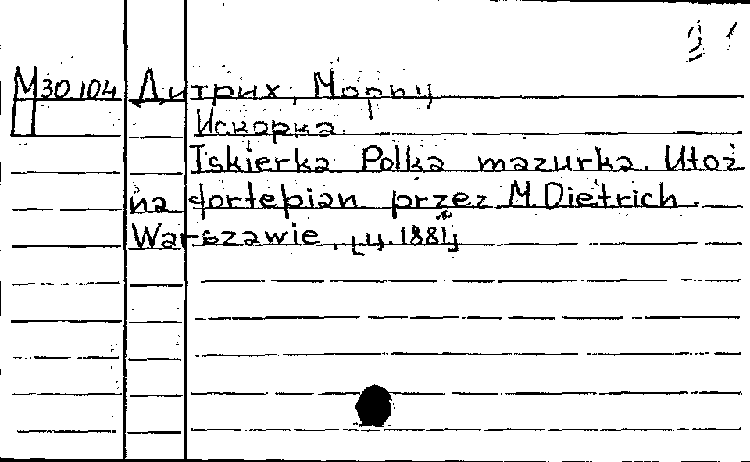 М 30 104 Дитрих, Морпц
Искорка.
Iskierka Polka mazurka. Utoż
na fortepian przez M Dietrich.
Warszawie, [ц. 1881]